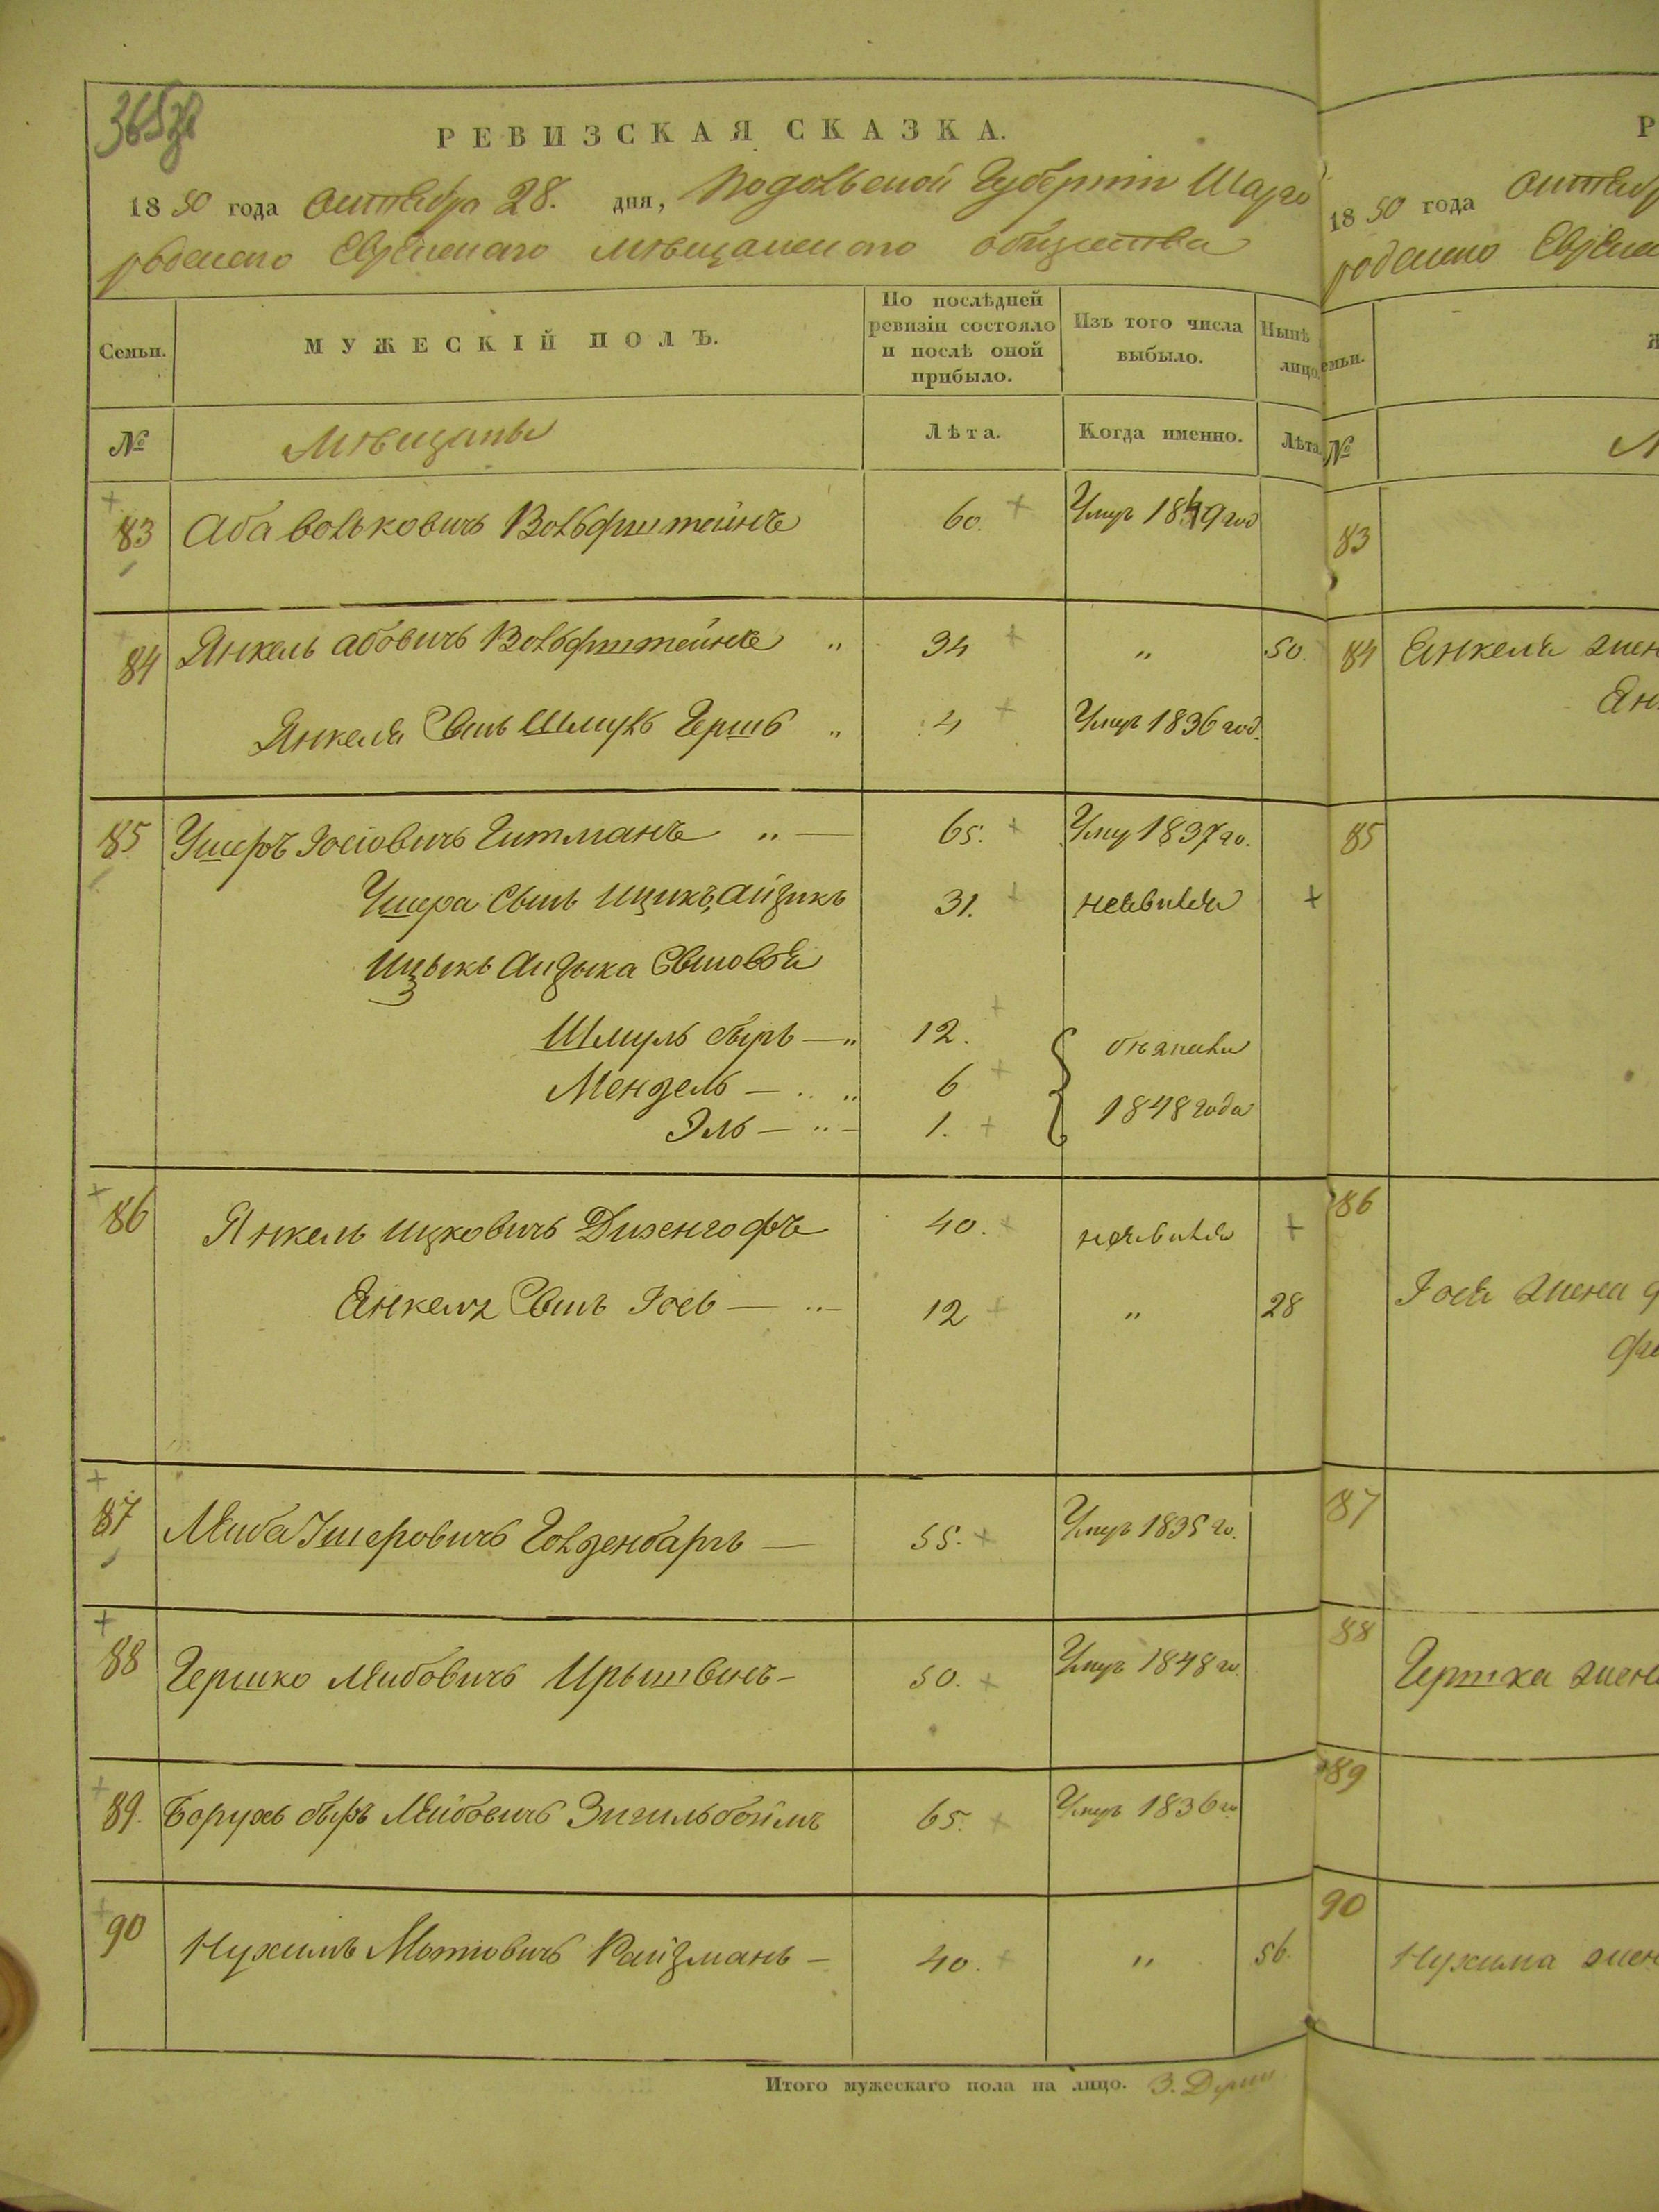 РЕВИЗСКАЯ СКАЗКА.
1850 года Октября 28. дня, Подольской Губернии Шарго
родскаго Еврейскаго мѣщанскаго общества
Семьи. МУЖЕСКІЙ ПОЛЪ. По послѣдней ревизіи состояло и послѣ оной прибыло. Изъ того числа выбыло. Нынѣ на лицо.
№ Мѣщаны Лѣта. Когда именно. Лѣта.
83 Аба Вольковичъ Вольфштейнъ 60. Умеръ 1849 год
84 Янкель Абовичъ Вольфштейнъ „ 34 „ 50.
Янкеля Сынъ Шмуль Гершъ „ 4 Умеръ 1836 год.
85 Ушеръ Іосіовичъ Гитманъ „ 65. Умер 1837 го.
Ушера Сынъ Ицикъ Айзикъ 31. неявился +
Ицыкъ Айзыка Сыновья
Шмуль Быръ — „ 12.
Мендель — „ 6 1848 года
Эль — „ 1.
86 Янкель Ицковичъ Дизенгофъ 40. неявился +
Енкеля Сынъ Іось — „ 12 „ 28
87 Лейба Ушеровичъ Голденбаргъ — 55. Умеръ 1835 го.
88 Гершко Лейбовичъ 50. Умеръ 1848 го.
89. Борухъ Быръ Лейбовичъ Зигильбоймъ 65. Умеръ 1836 го
90 Нухимъ Мотіовичъ Райзманъ — 40. „ 56.
Итого мужескаго пола на лицо. 3. Души
Р
1850 года Октябр
родскаго Еврей
емьи.
№
83
84 Енкеля жен
Ян
85
86
Іося жена
87
88
Гершка жена
89
90
Нухима жен